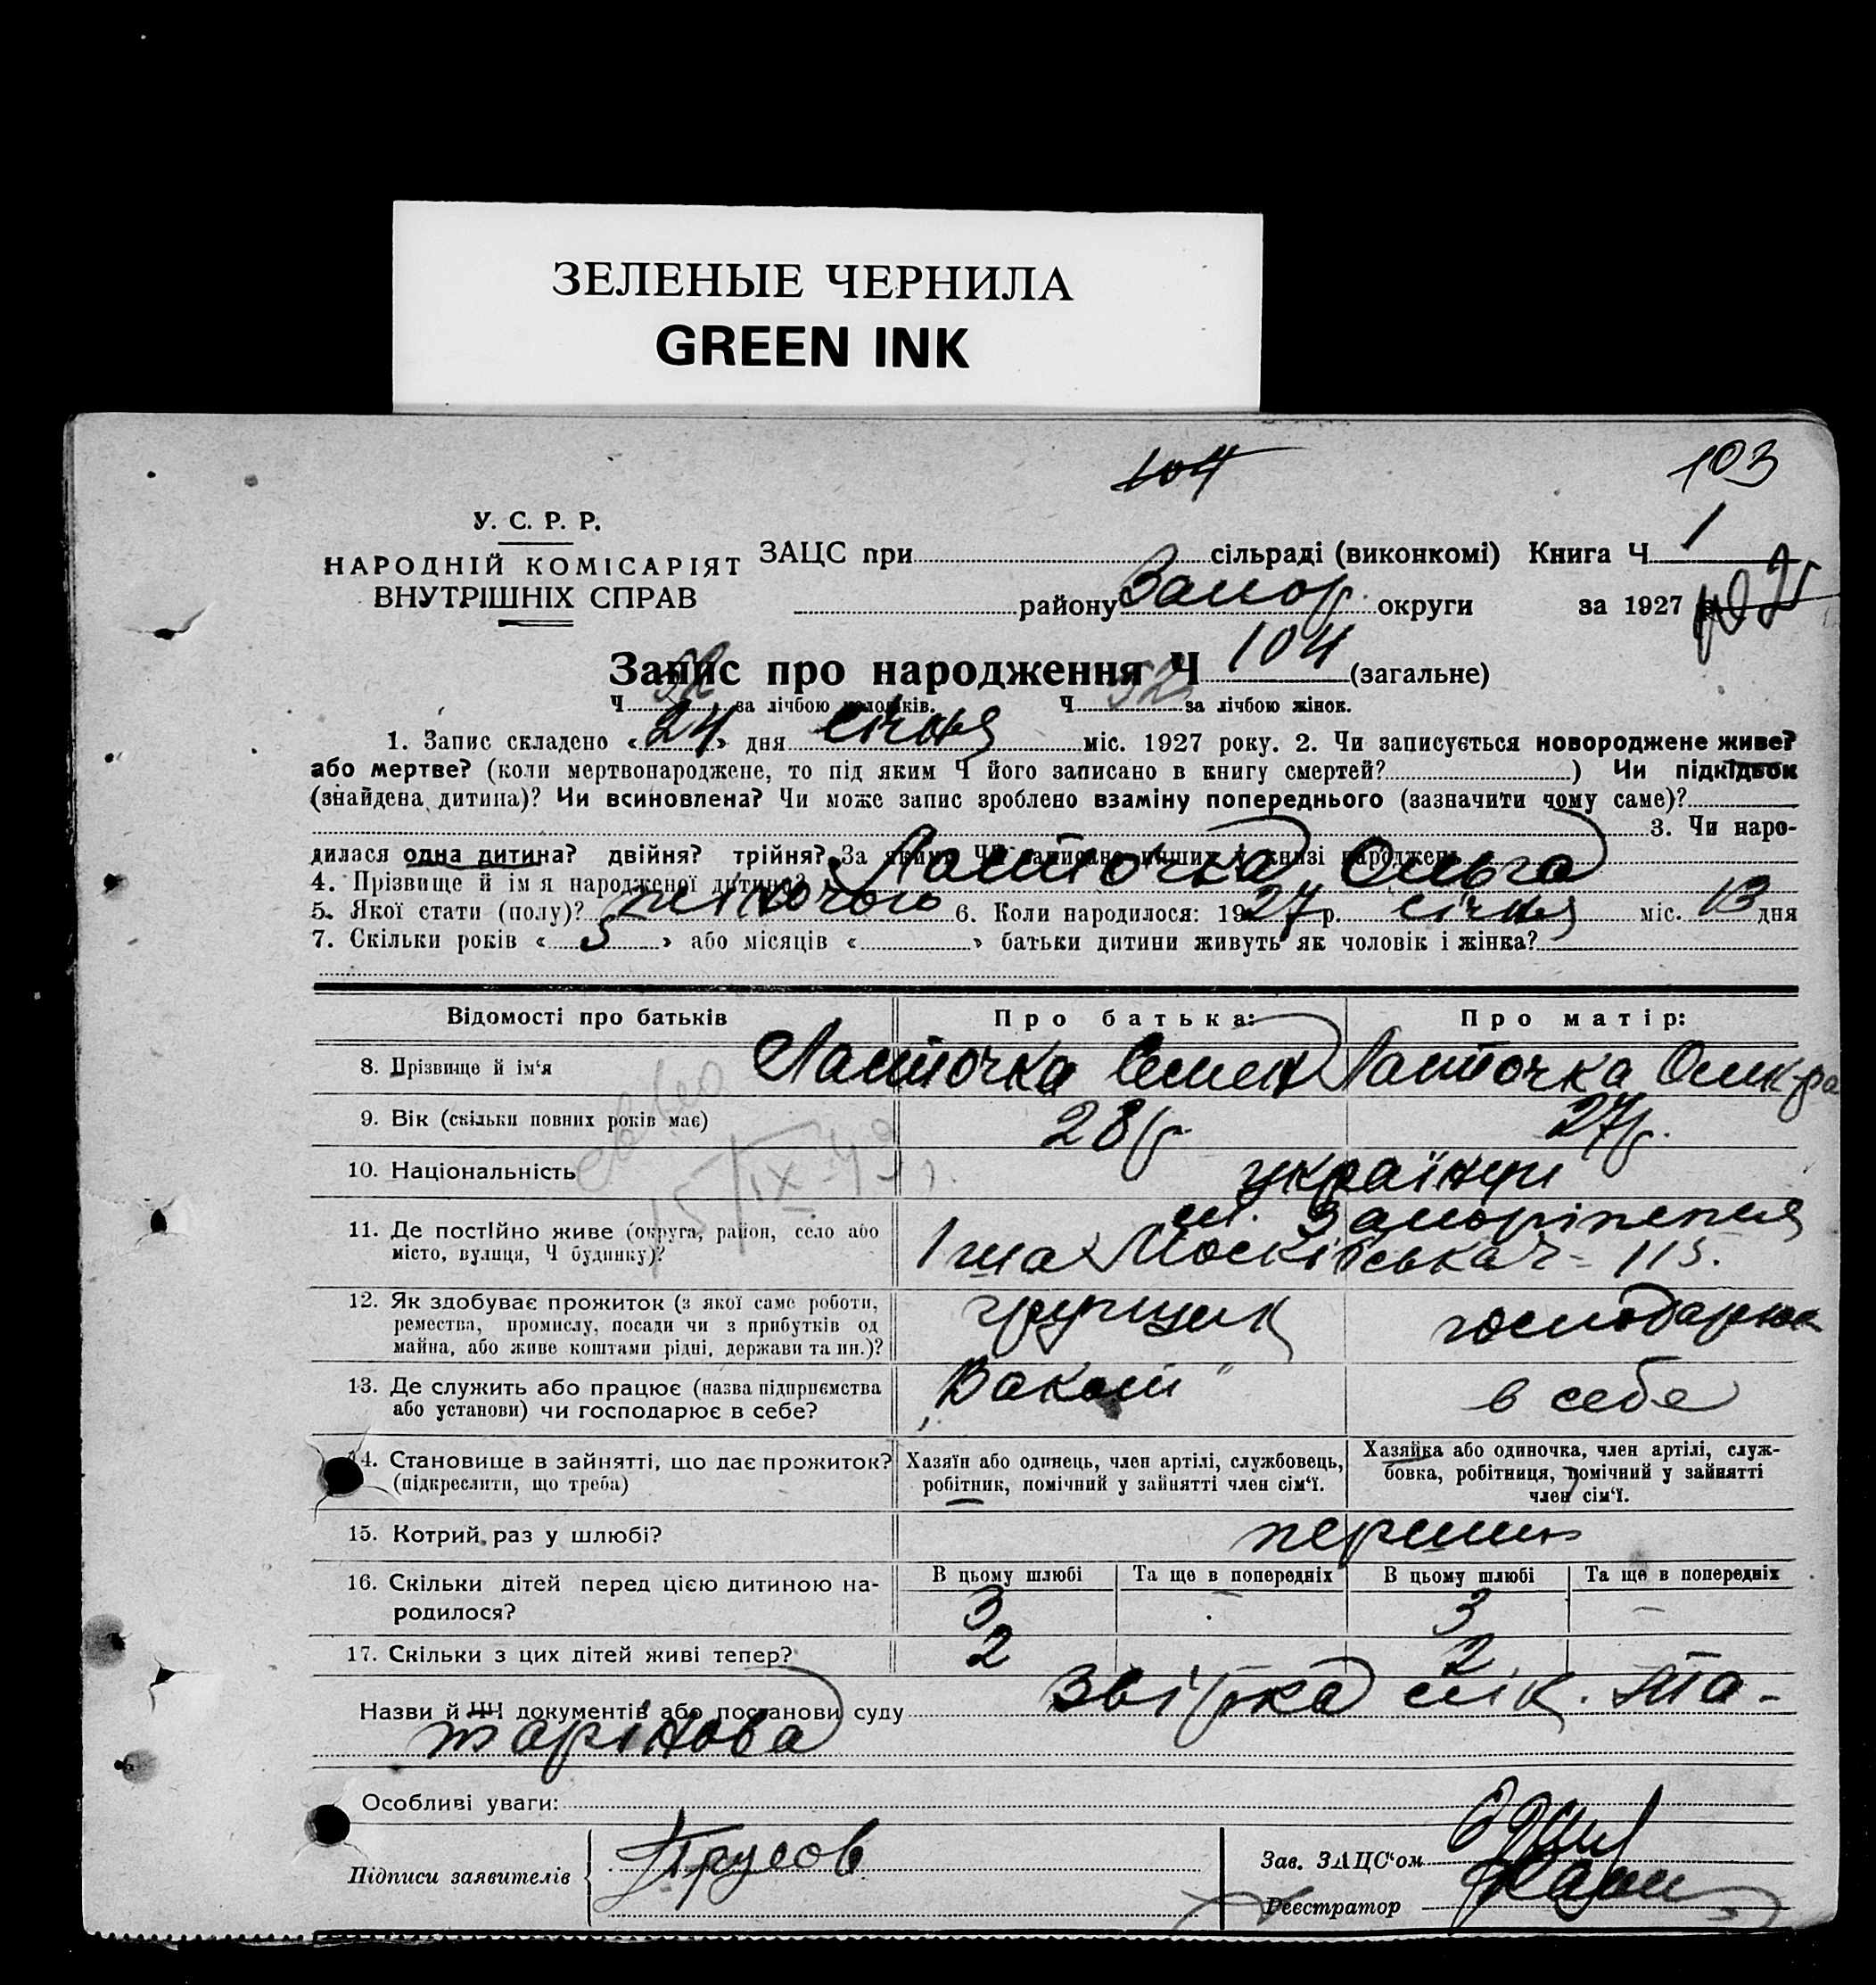 ЗЕЛЕНЫЕ ЧЕРНИЛА
GREEN INK
104
103
У. С. Р. Р.
НАРОДНІЙ КОМІСАРІЯТ
ВНУТРІШНІХ СПРАВ
ЗАЦС при сільраді (виконкомі) Книга Ч 1
району Запор. округи за 1927
Запис про народження Ч 104 (загальне)
Ч за лічбою чоловіків. Ч 52 за лічбою жінок.
1. Запис складено «24» дня січня міс. 1927 року. 2. Чи записується новороджене живе?
або мертве? (коли мертвонароджене, то під яким Ч його записано в книгу смертей? ) Чи підкідьок
(знайдена дитина)? Чи всиновлена? Чи може запис зроблено взаміну попереднього (зазначити чому саме)?
3. Чи наро-
дилася одна дитина? двійня? трійня? За яким ЧЧ записано инших у книзі народжень
4. Прізвище й ім я народженої дитини? Ласточка Ольга
5. Якої стати (полу)? жіночою 6. Коли народилося: 1927 р. січня міс. 13 дня
7. Скільки років « 5 » або місяців « » батьки дитини живуть як чоловік і жінка?
Відомості про батьків Про батька: Про матір:
8. Прізвище й ім‘я Ласточка Семен Ласточка
9. Вік (скільки повних років має) 28 р. 27 р.
15/IX-49
10. Національність українці
11. Де постійно живе (округа, район, село або м. Запоріжжя
місто, вулиця, Ч будинку)? Московська Ч - 115.
12. Як здобуває прожиток (з якої саме роботи,
ремества, промислу, посади чи з прибутків од
майна, або живе коштами рідні, держави та ин.)?
13. Де служить або працює (назва підприємства
або установи) чи господарює в себе? в себе
14. Становище в зайнятті, що дає прожиток? Хазяїн або одинець, член артілі, службовець, Хазяйка або одиночка, член артілі, служ-
(підкреслити, що треба) робітник, помічний у зайнятті член сім‘ї. бовка, робітниця, помічний у зайнятті
член сім‘ї.
15. Котрий раз у шлюбі? перший
16. Скільки дітей перед цією дитиною на- В цьому шлюбі Та ще в попередніх В цьому шлюбі Та ще в попередніх
родилося? 3 3 –
17. Скільки з цих дітей живі тепер? 2 2
Назви й ЧЧ документів або постанови суду
Особливі уваги:
Підписи заявителів Трусов Зав. ЗАЦС‘ом
Реєстратор